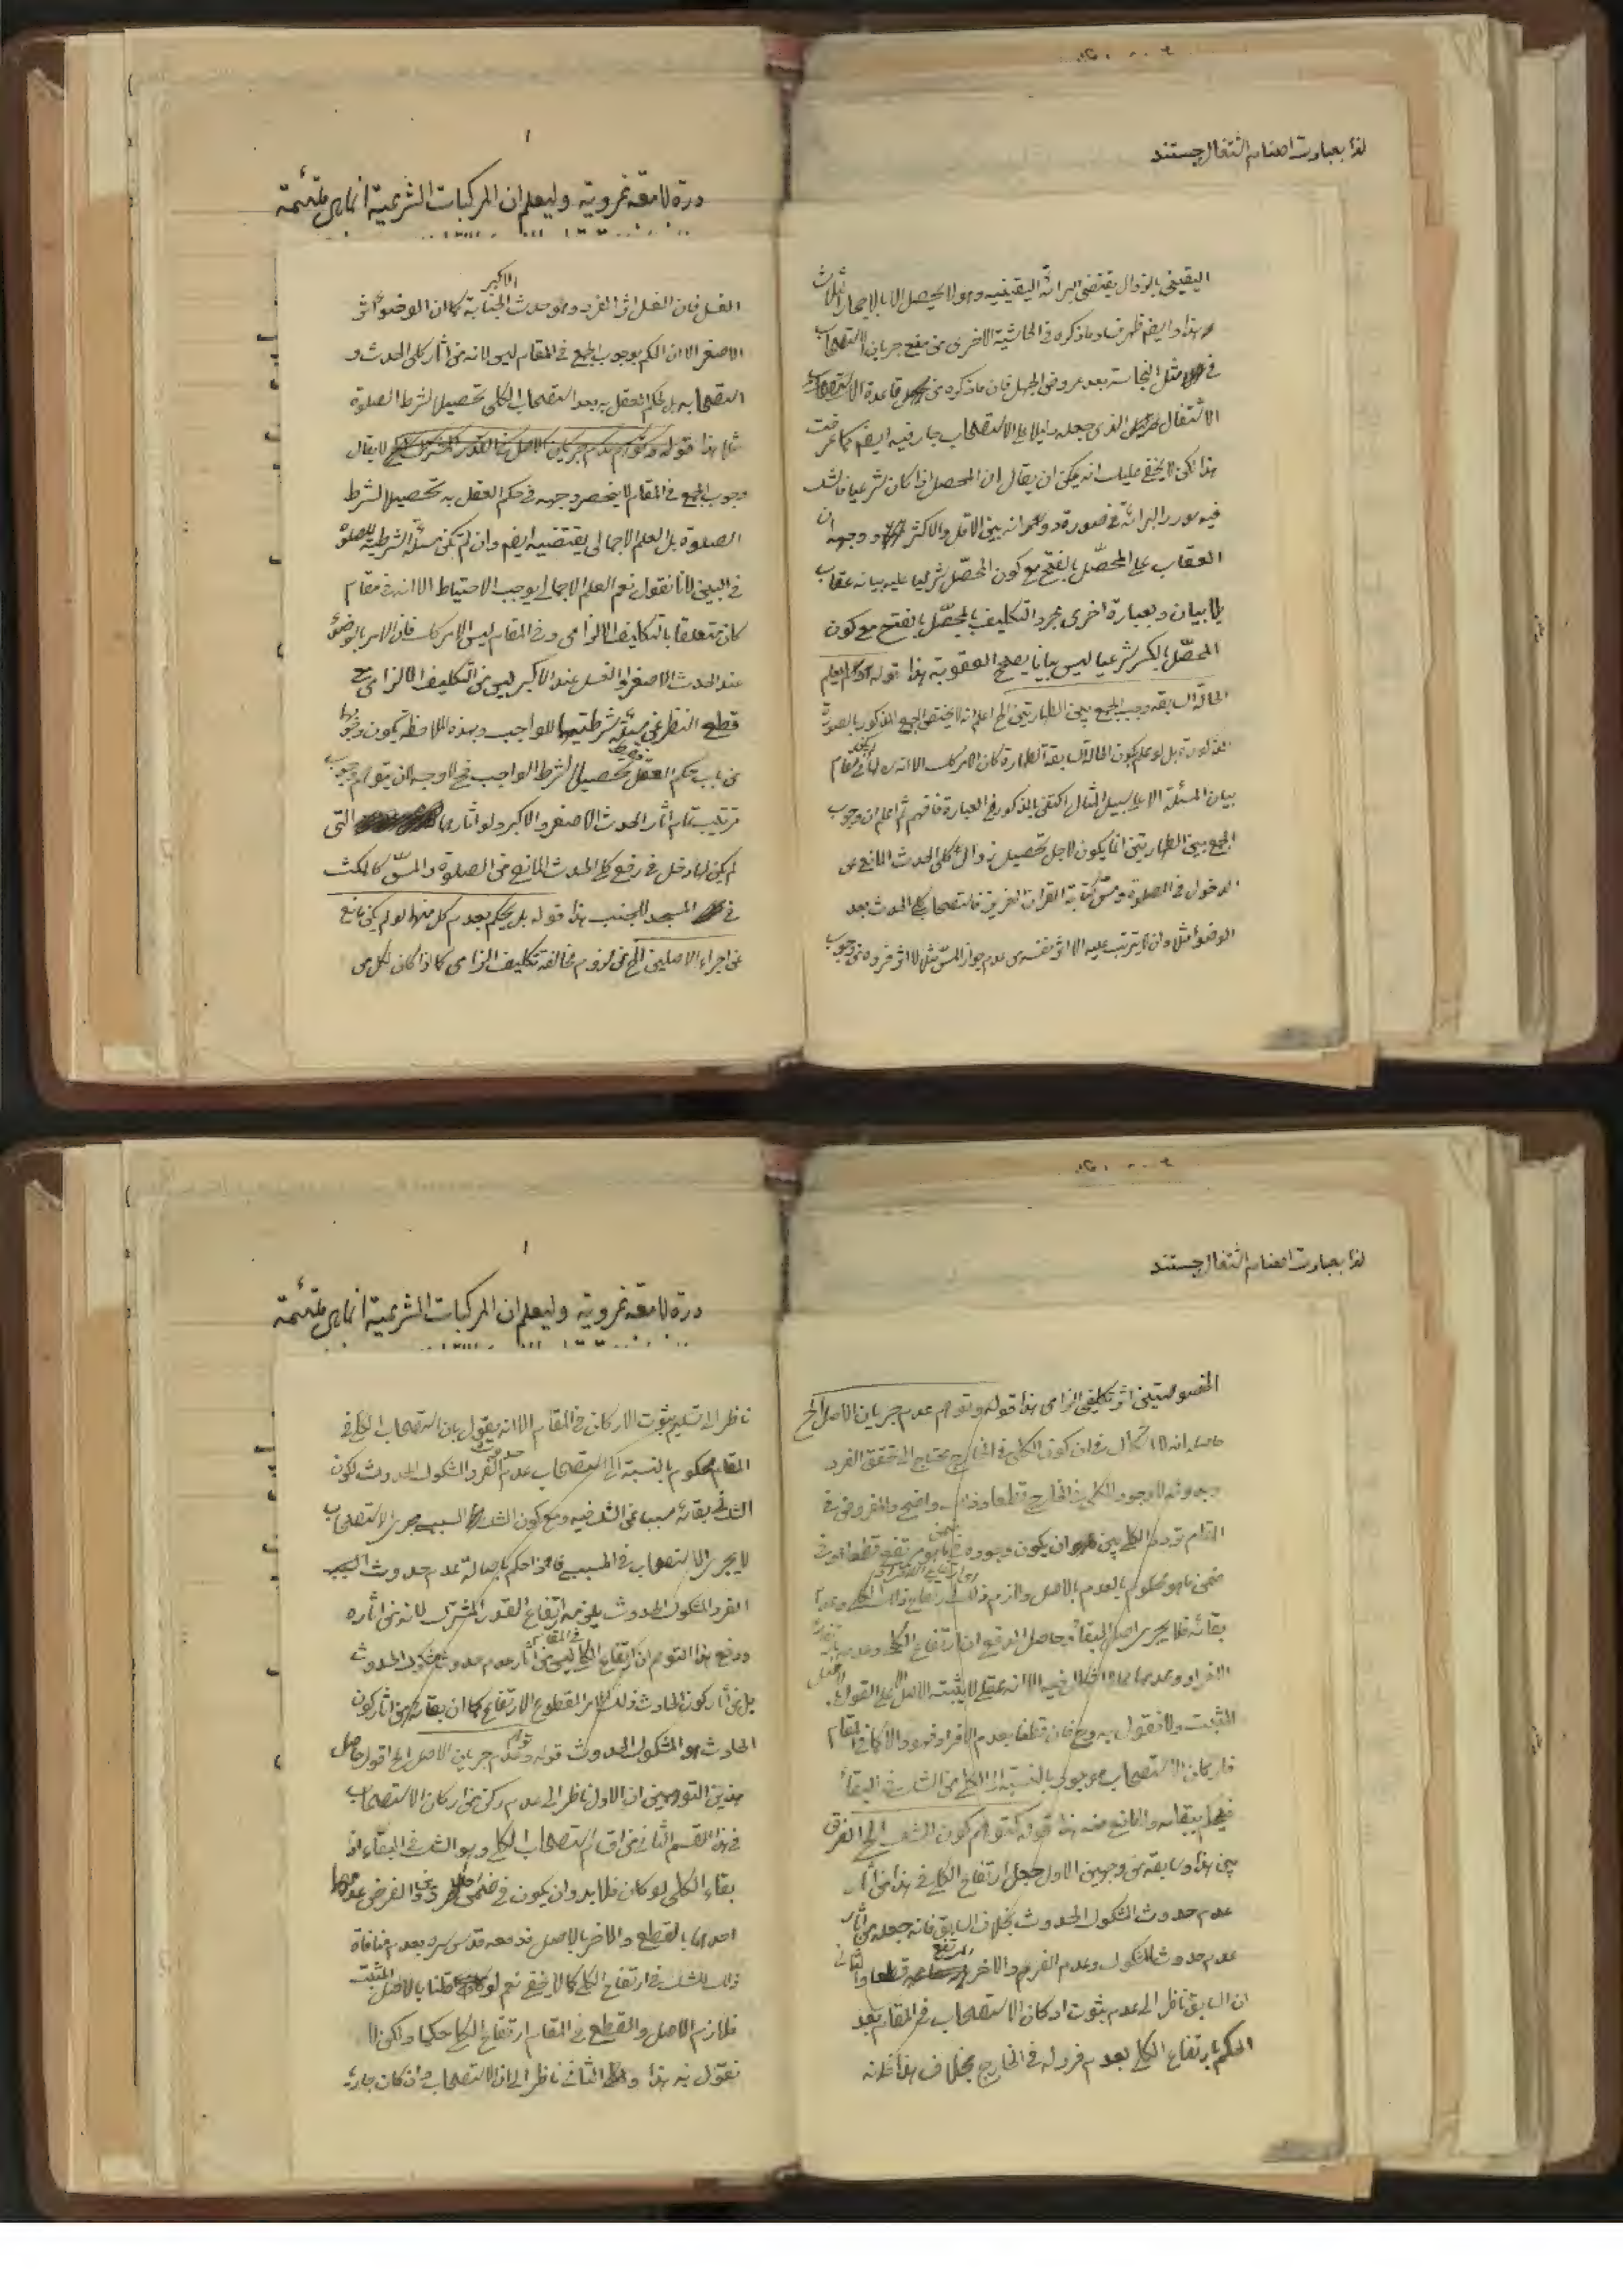 لذا بعبارت اصنام اشتغال جستند
اليقيني بالزوال يقتضي البرائة اليقينيه وهو لا يحصل الا بالاحجار الثلاث
هذا وايضا ظهر فساد ما ذكره في الحاشية الاخرى من منع جريان الاستصحاب
في مثل النجاسة بعد عروض الجهل فان ما ذكره من قاعدة
الاشتغال الذي جعله دليلا على الاستصحاب جار فيه ايضا كما عرفت
هذا لكن لا يخفى عليك انه يمكن ان يقال ان المحصل اذا كان شرعيا فالشك
فيه مورد البرائة في صورة دورانه بين الاقل والاكثر ووجهه ان
العقاب على المحصّل بالفتح مع كون المحصّل شرعيا عليه بيانه عقاب
بلا بيان وبعبارة اخرى مجرد التكليف بالمحصّل بالفتح مع كون
المحصّل بالكسر شرعيا ليس بيانا يصحح العقوبة هذا قوله يعلم
الحالة السابقة وجب الجمع بين الطهارتين الخ اعلم انه لا يختص الجمع المذكور بالصورة
بل لو علم بكون الحالة السابقة الطهارة كان الامر كك الا انه في مقام
بيان المسئلة الا على سبيل المثال اكتفى بالمذكور في العبارة فافهم ثم اعلم ان وجوب
الجمع بين الطهارتين انما يكون لاجل تحصيل زوال كلي الحدث المانع عن
الدخول في الصلوة ومسّ كتابة القران العزيز فاستصحاب كلي الحدث بعد
الوضوء مثلا وان لا يترتب عليه الا اثر نفسه من عدم جواز المسّ مثلا لا اثر فرده من وجوب
١
درة لامعة غروية وليعلم ان المركبات الشرعية انما هي ملتئمة
الغسل فان الغسل اثر الفرد وهو حدث الجنابة الاكبر كما ان الوضوء اثر
الاصغر الا ان الحكم بوجوب الجمع في المقام ليس لانه من اثار كلي الحدث و
استصحابه بل لحكم العقل به بعد استصحاب الكلي تحصيلا لشرط الصلوة
مثلا هذا لا يقال
وجوب الجمع في المقام لا ينحصر وجهه في حكم العقل به تحصيلا لشرط
الصلوة بل العلم الاجمالي يقتضيه ايضا وان لم تكن مسئلة الشرطية للصلوة
في البين لانا نقول نعم العلم الاجمالي يوجب الاحتياط الا انه في مقام
كان متعلقا بالتكليف الالزامى وفي المقام ليس الامر كك فان الامر بالوضوء
عند الحدث الاصغر او الغسل عند الاكبر ليس من التكليف الالزامى مع
قطع النظر عن مسئلة شرطيتها للواجب وبهذه الملاحظة يكون وجوبها
من باب حكم العقل تحصيلا لشرط الواجب فح لا وجه لان يتوهم وجوب
ترتيب تمام اثار الحدث الاصغر والاكبر ولو اثارهما التي
لم يكن لها دخل في رفع كلي الحدث المانع من الصلوة والمسّ كالمكث
في المسجد للجنب هذا قوله بل يحكم بعدم كل منهما لو لم يكن مانع
عن اجراء الاصلين الخ من لزوم مخالفة تكليف الزامى كما اذا كان لكل من
لذا بعبارت اصنام اشتغال جستند
الخصوصيتين اثر تكليفي الزامى هذا قوله وتوهم عدم جريان الاصل الخ
حاصله انه لا اشكال في ان كون الكلي في الخارج محتاج الى تحقق الفرد
وبدونه لا وجود للكلي في الخارج قطعا وذلك واضح والمفروض في
المقام تردد الكلي بين ان يكون وجوده في ضمن ما هو مرتفع قطعا او في
ضمن ما هو محكوم بالعدم بالاصل ولازم ذلك ارتفاع ذلك الكلي وعدم
بقائه فلا يجرى اصل البقاء وحاصل الدفع ان ارتفاع الكلي وعدمه
الافراد وعدمها مما لا اشكال فيه الا انه عقلي لا يثبته الاصل الا على القول
المثبت ولا نقول به وح فان قطعنا بعدم الافراد فهو والا كما في المقام
فاركان الاستصحاب موجود بالنسبة الى الكلي من الشك في البقاء
فيحكم ببقائه ولا مانع منه هذا قوله كتوهم كون الشك الخ الفرق
بين هذا وسابقه من وجهين الاول جعل ارتفاع الكلي في هذا من اثار
عدم حدوث المشكوك الحدوث بخلاف السابق فانه جعله من اثار
عدم حدوث المشكوك وعدم الفرد الاخر المرتفع قطعا والثانى
ان السابق ناظر الى عدم ثبوت اركان الاستصحاب في المقام بعد
الحكم بارتفاع الكلي بعدم فرد له في الخارج بخلاف هذا فانه
١
درة لامعة غروية وليعلم ان المركبات الشرعية انما هي ملتئمة
ناظر الى تسليم ثبوت الاركان في المقام الا انه يقول بان استصحاب الكلي في
المقام محكوم بالنسبة الى استصحاب عدم حدوث الفرد المشكوك الحدوث لكون
الشك في بقائه مسببا عن الشك فيه ومع كون الشك السبب مجرى الاستصحاب
لا يجرى الاستصحاب في المسبب فاذا حكم باصالة عدم حدوث
الفرد المشكوك الحدوث يلزمه ارتفاع القدر المشترك لانه من اثاره
ودفع هذا التوهم ان ارتفاع الكلي في المقام ليس من اثار عدم حدوث مشكوك الحدوث
بل من اثار كون الحادث ذلك الامر المقطوع الارتفاع كما ان بقائه من اثار كون
الحادث هو المشكوك الحدوث قوله وتوهم عدم جريان الاصل الخ اقول حاصل
هذين التوهمين ان الاول ناظر الى عدم ركن من اركان الاستصحاب
في هذا القسم الثاني من اقسام استصحاب الكلي وهو الشك في البقاء اذ
بقاء الكلي لو كان فلا بد وان يكون في ضمن فرد والفرض عدمهما
احدهما بالقطع والاخر بالاصل فدفعه قدس سره بعدم منافاة
ذلك للشك في ارتفاع الكلي كما لا يخفى نعم لو قلنا بالاصل المثبت
فلازم الاصل والقطع في المقام ارتفاع الكلي حكما ولكن لا
نقول به هذا والثاني ناظر الى ان الاستصحاب وان كان جاريا